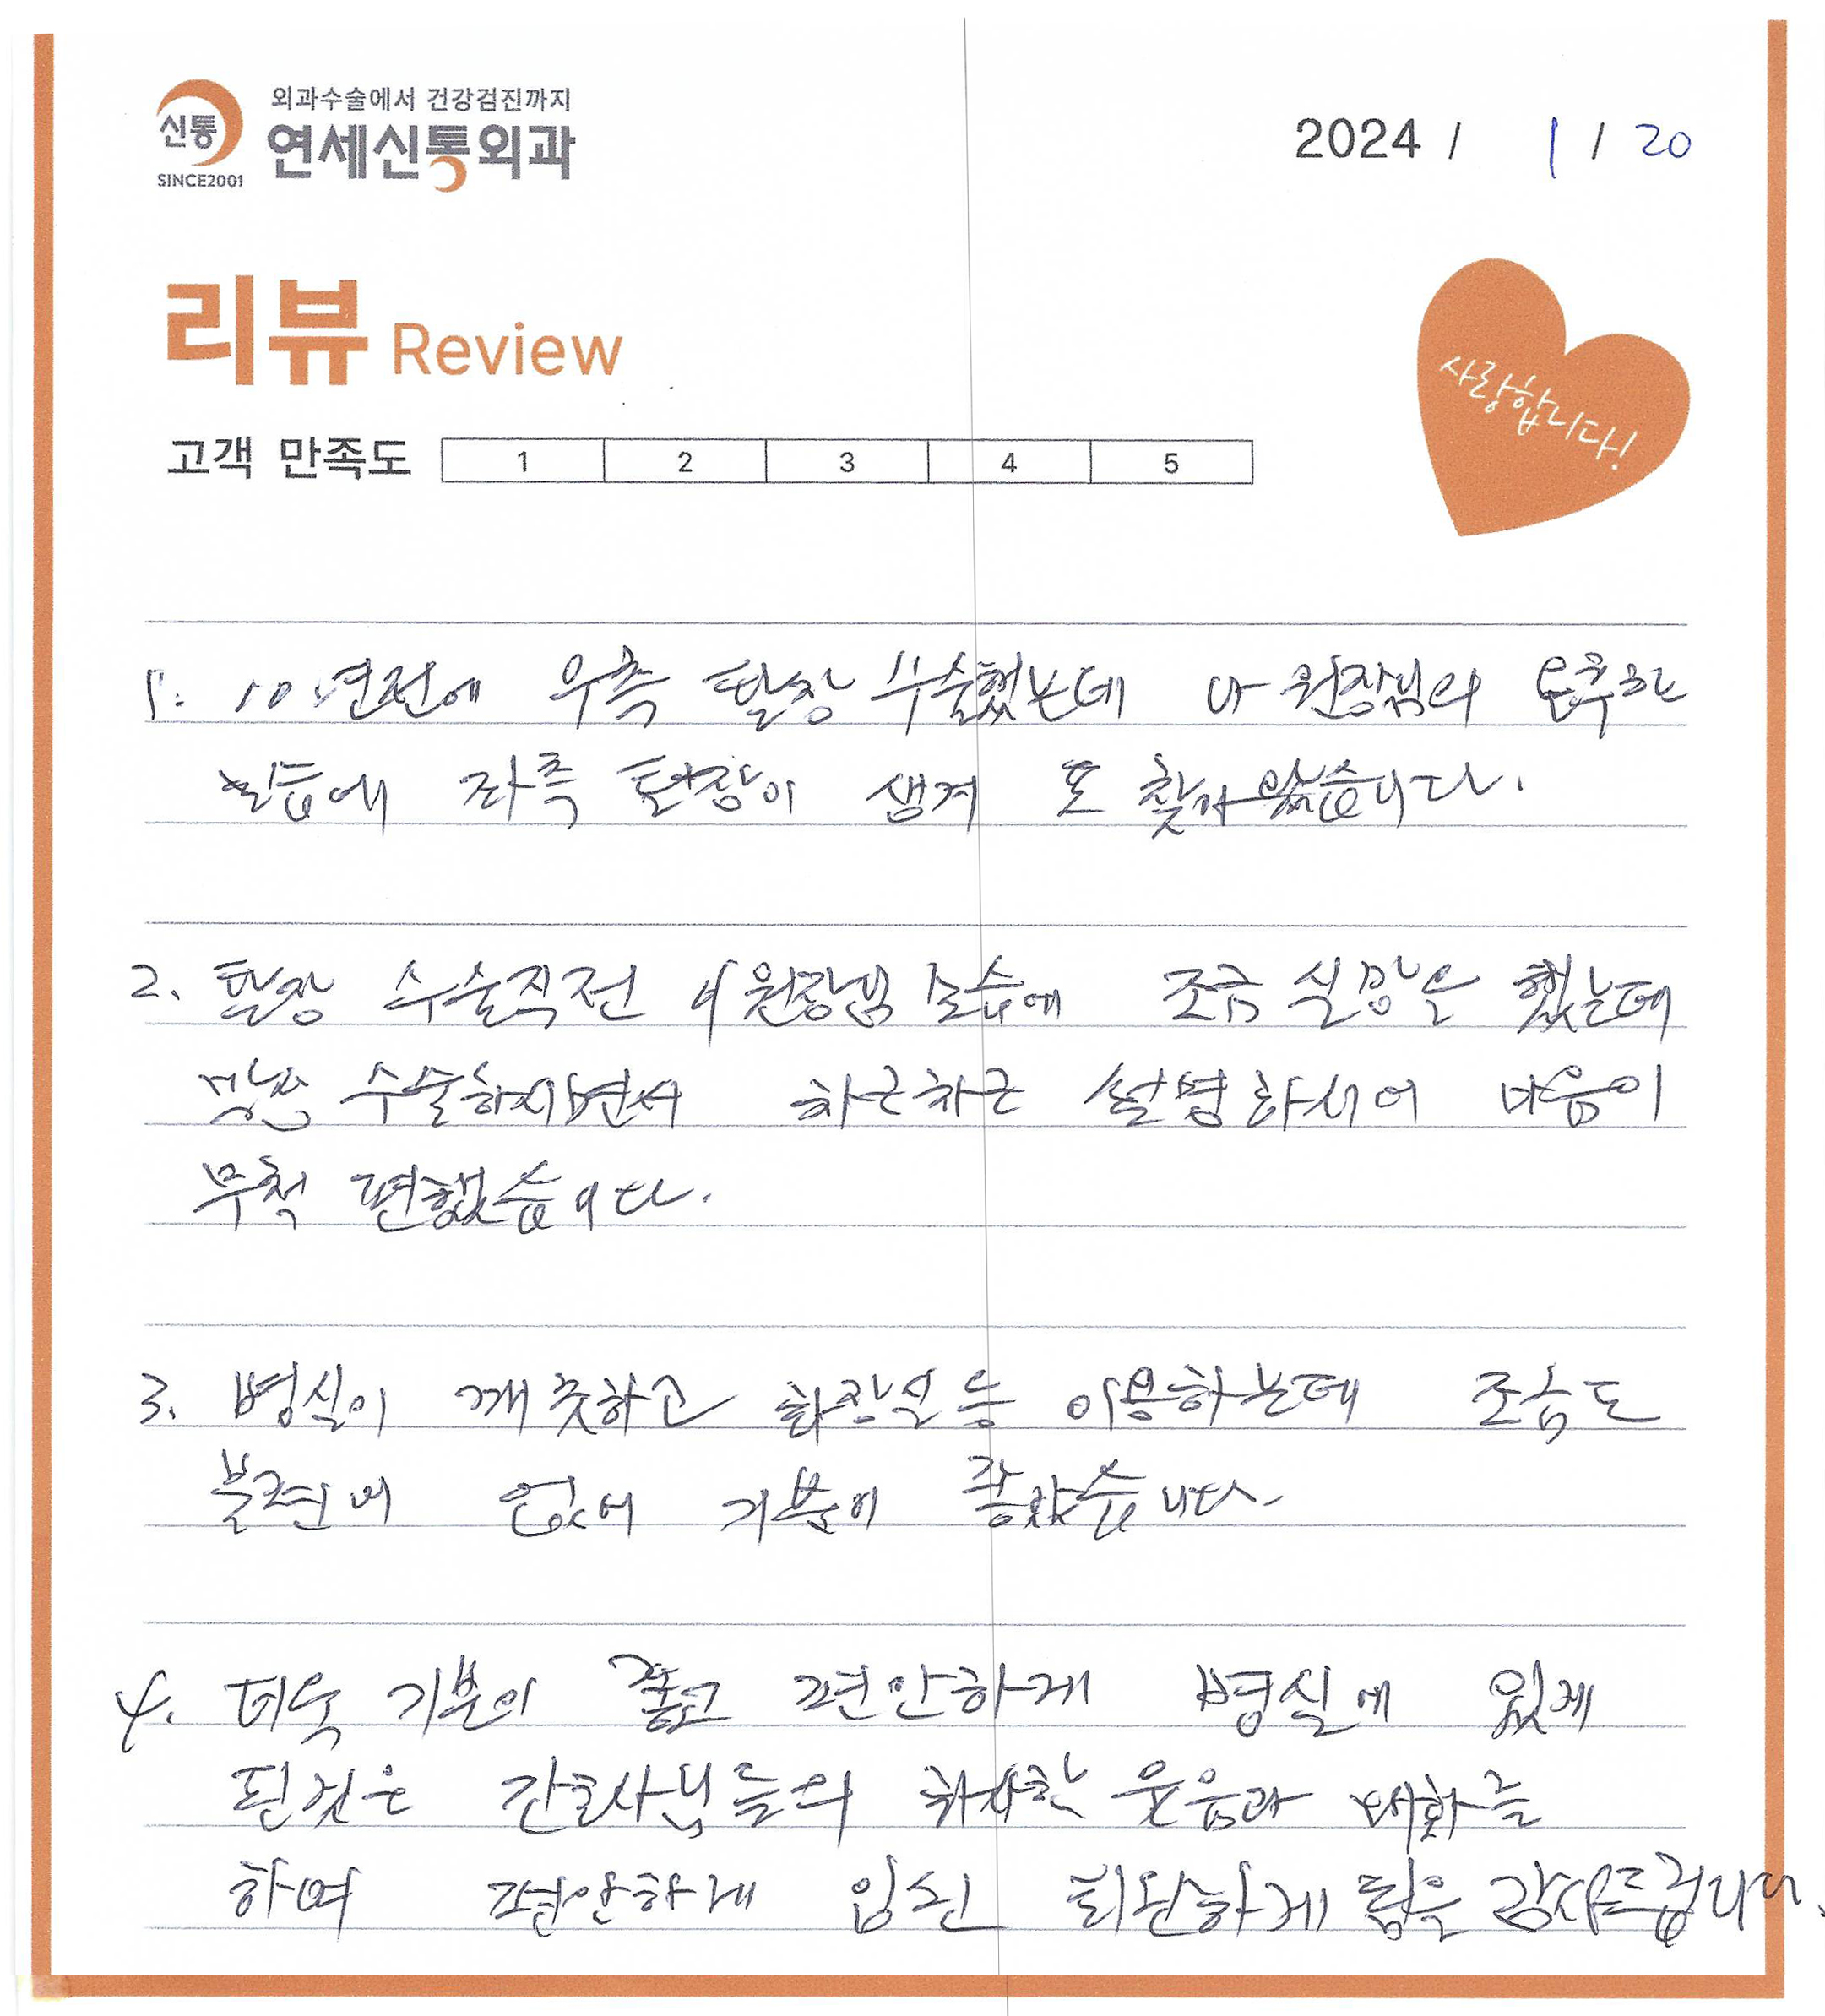 신통
SINCE2001
외과수술에서 건강검진까지
연세신통외과
2024 / 1 / 20
리뷰 Review
사랑합니다!
고객 만족도 1 2 3 4 5
1. 10년전에 우측 탈장 수술했는데 원장님의
좌측 탈장이 생겨 또 찾아 왔습니다.
2. 탈장 수술직전 원장님 모습에 조금 실망을 했는데
수술하시면서 차근차근 설명하시어 마음이
무척 편했습니다.
3. 병실이 깨끗하고 화장실 등 이용하는데 조금도
불편이 없어 기분이 좋았습니다.
4. 더욱 기분이 좋고 편안하게 병실에 있게
된것은 간호사님들의 웃음과 대화를
하여 편안하게 입원 퇴원하게 됨을 감사드립니다.